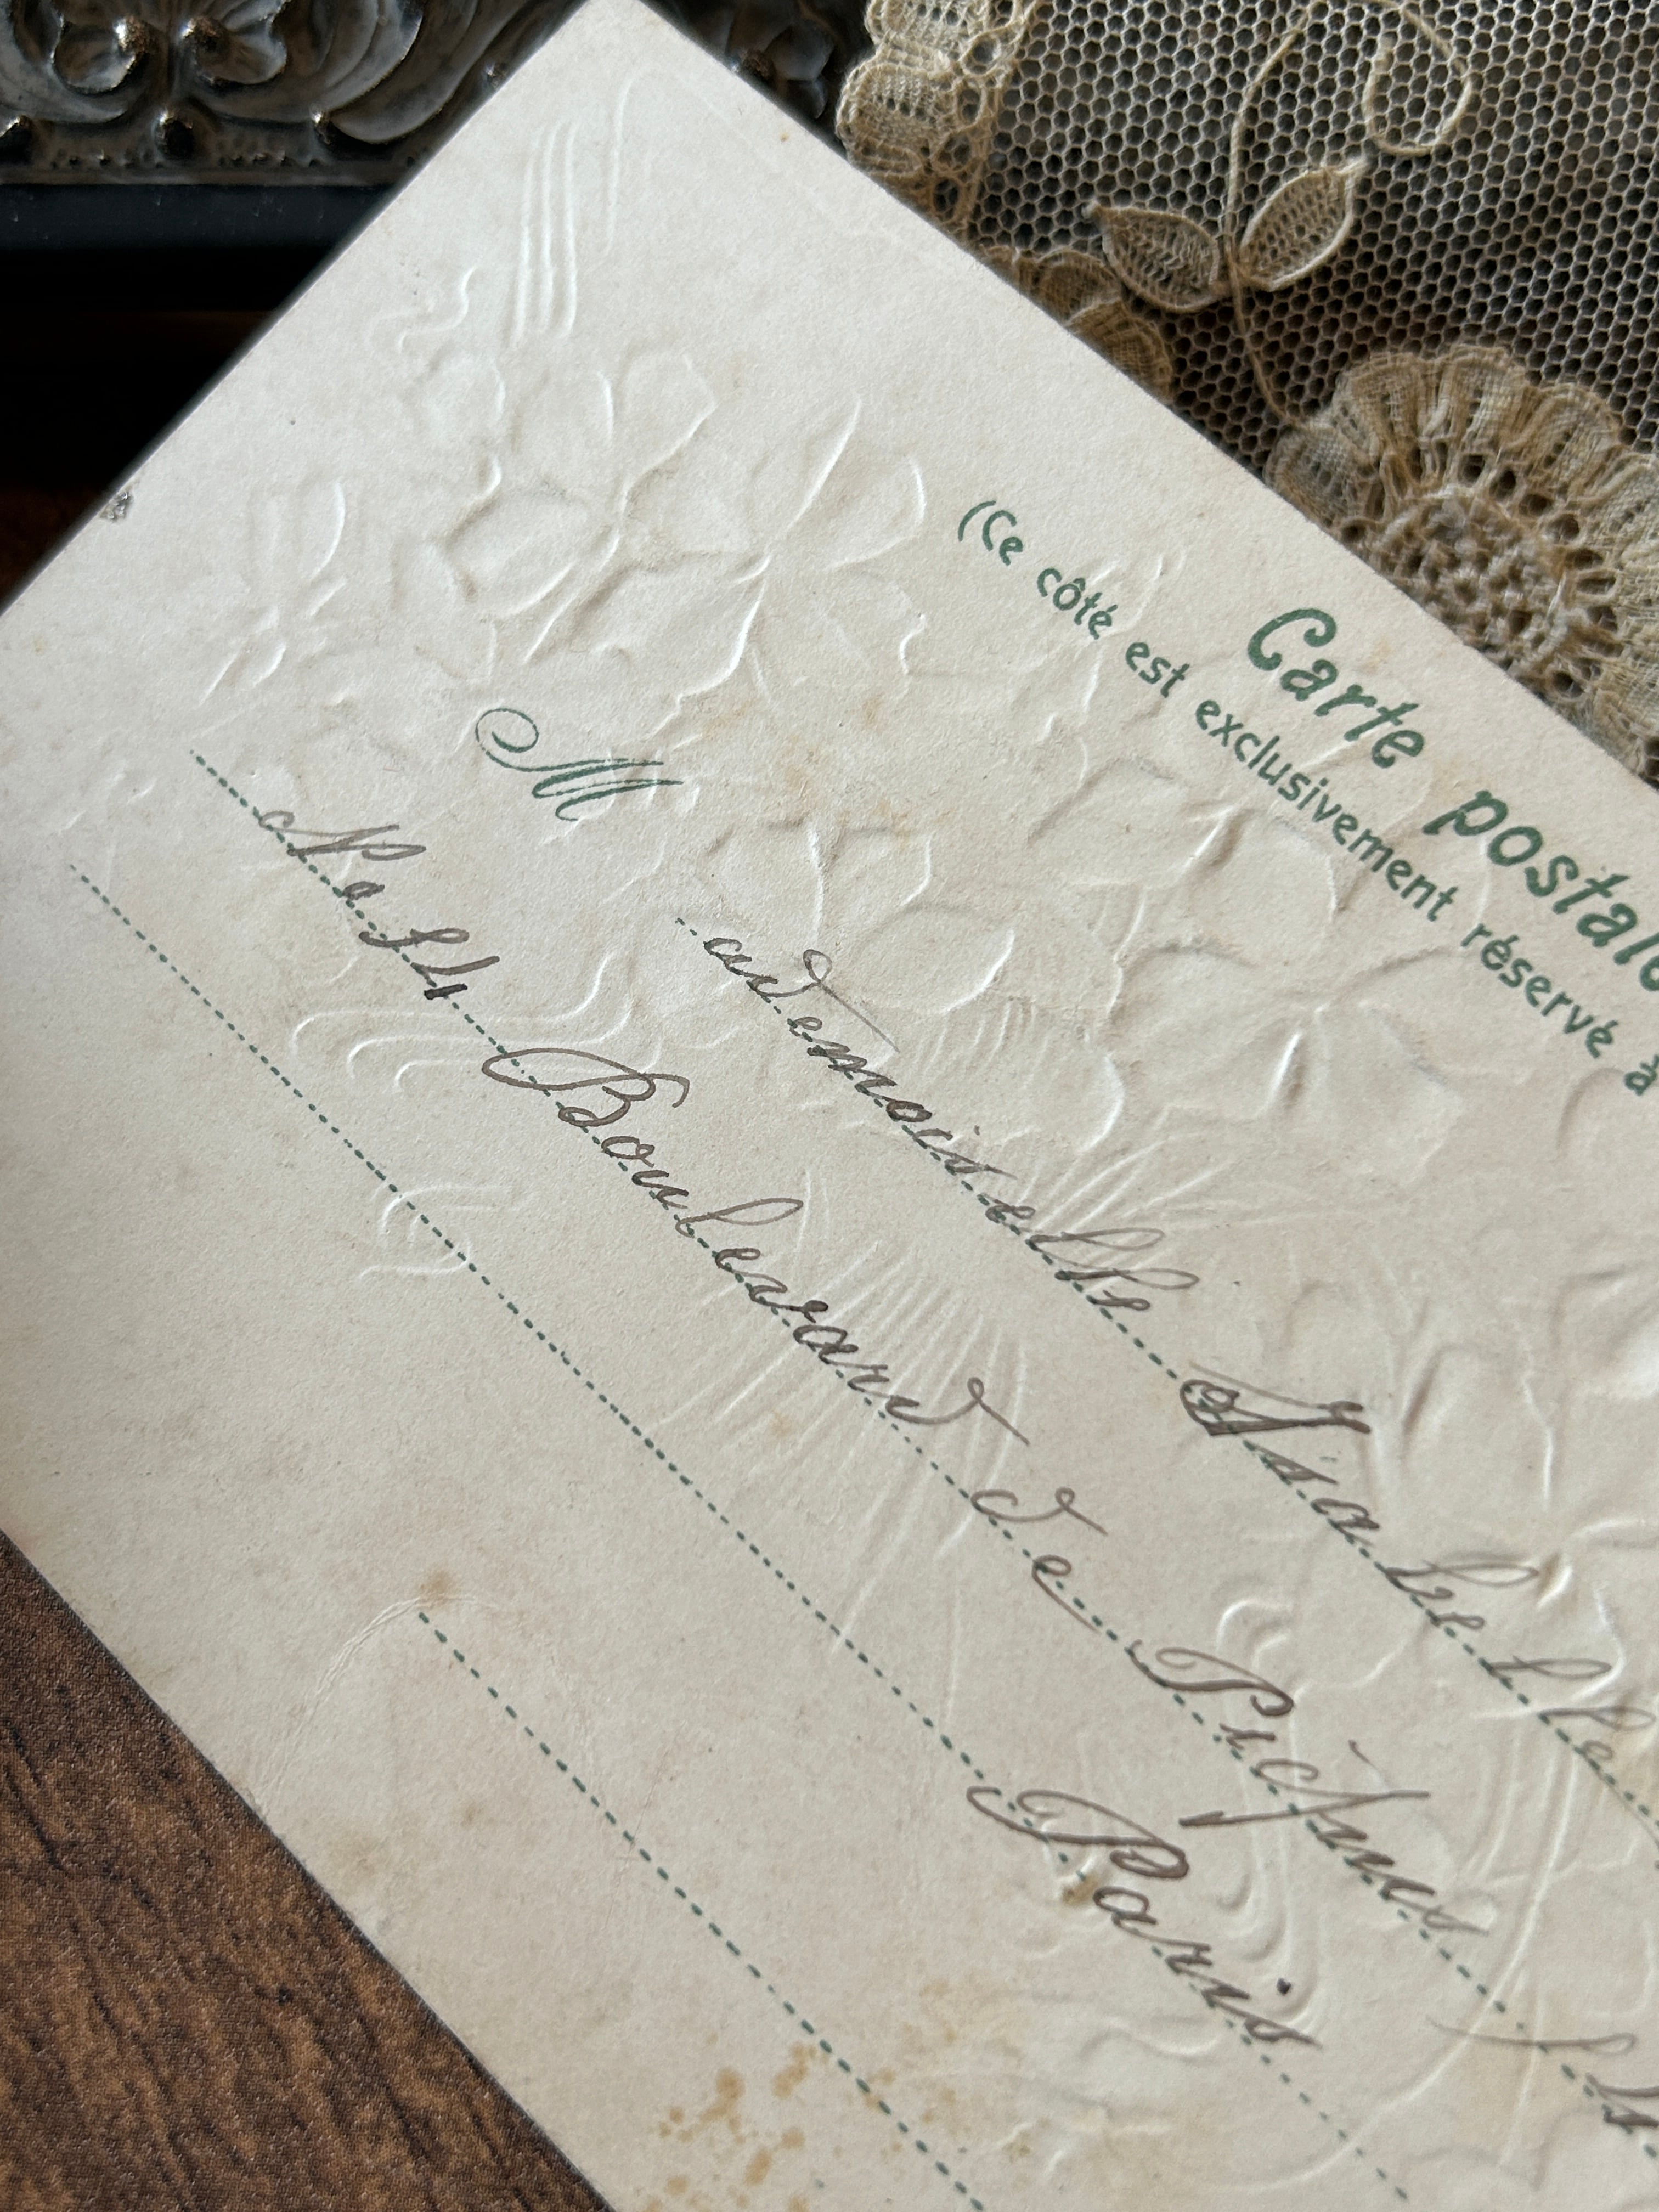 Carte postale
(Ce côté est exclusivement réservé à
Mademoiselle
Boulevard de Picpus
Paris